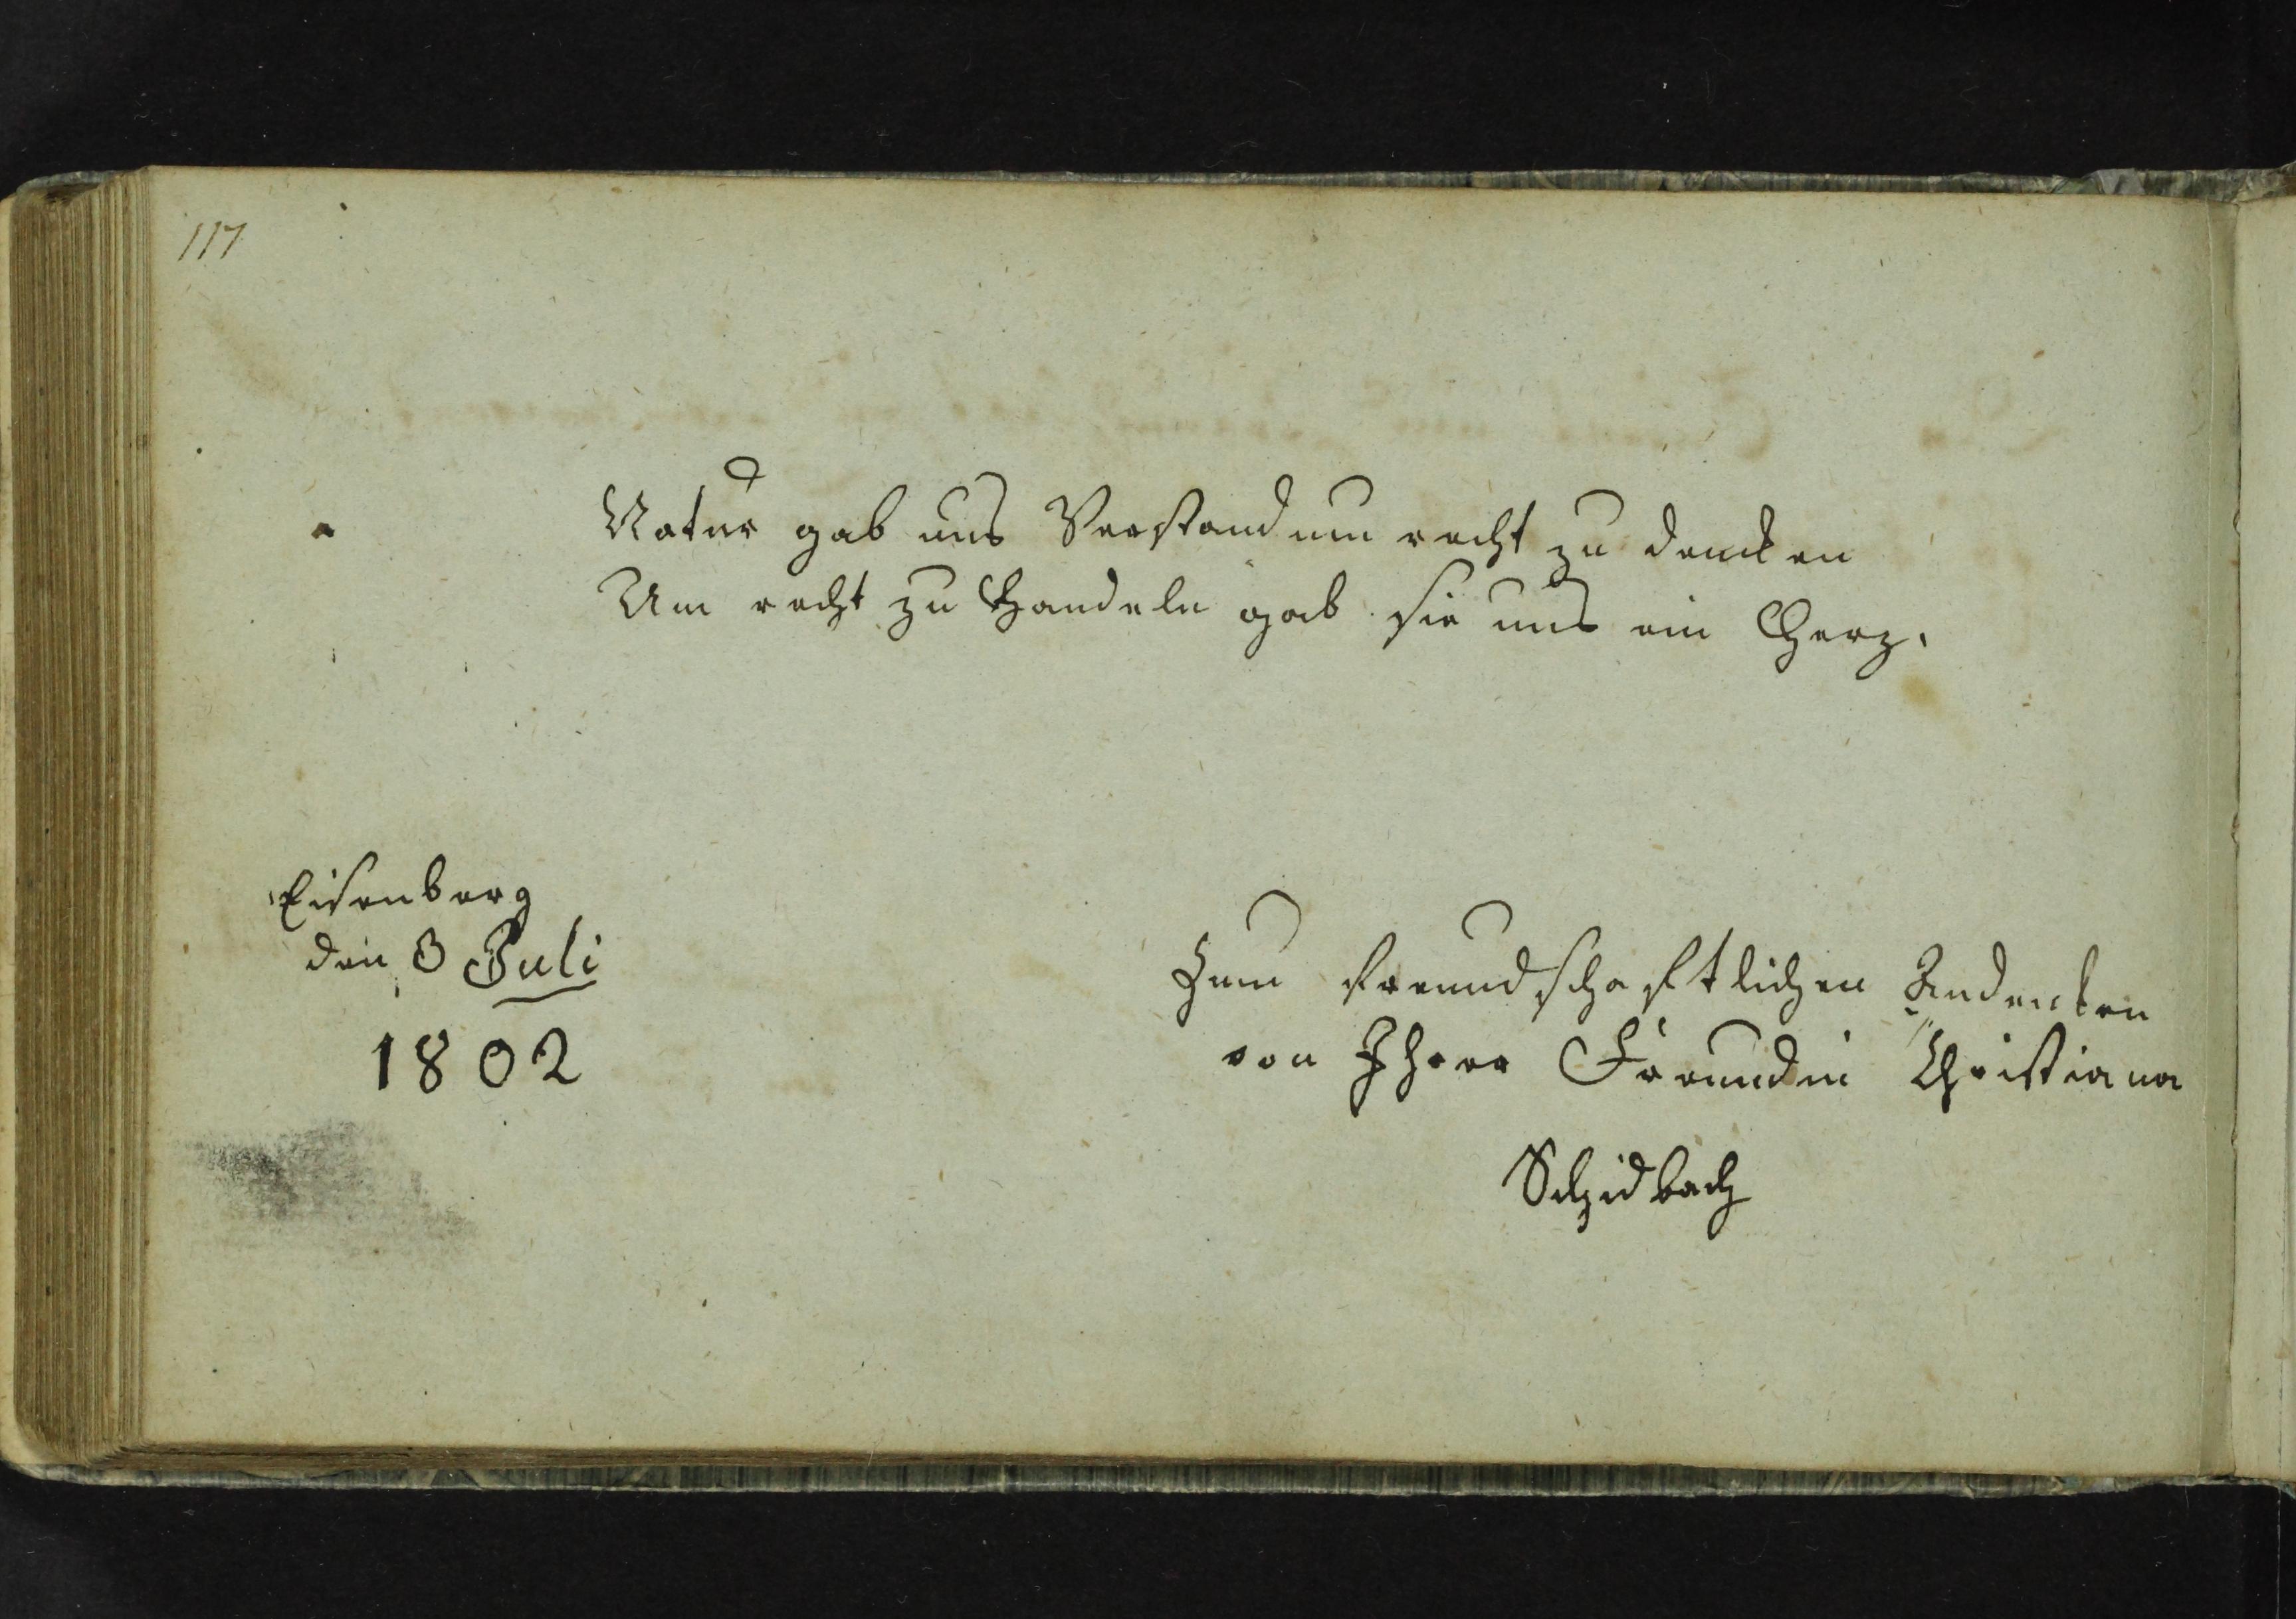 117
Natur gab uns Verstand um recht zu dencken
Um recht zu Handeln gab sie uns ein Herz.
Eisenberg
den 3 Juli
1802
Zum freundschaftlichen Andenken
von Ihrer Freundin Christiana
Schidbach